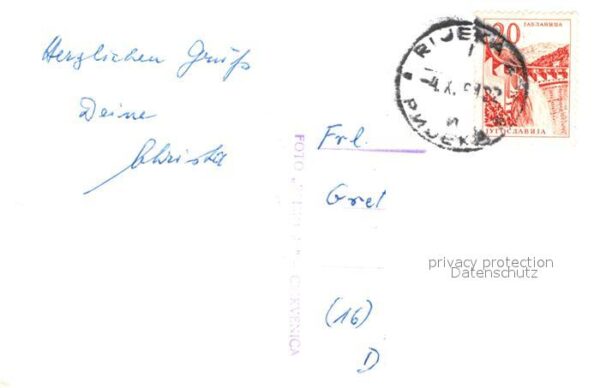 Herzlichen Gruß
Deine
Christa
FOTO CRIKVENICA
Frl.
Gret
(16)
D
20
ЈАБЛАНИЦА
ЈУГОСЛАВИЈА
RIJEKA
РИЈЕКА
privacy protection
Datenschutz